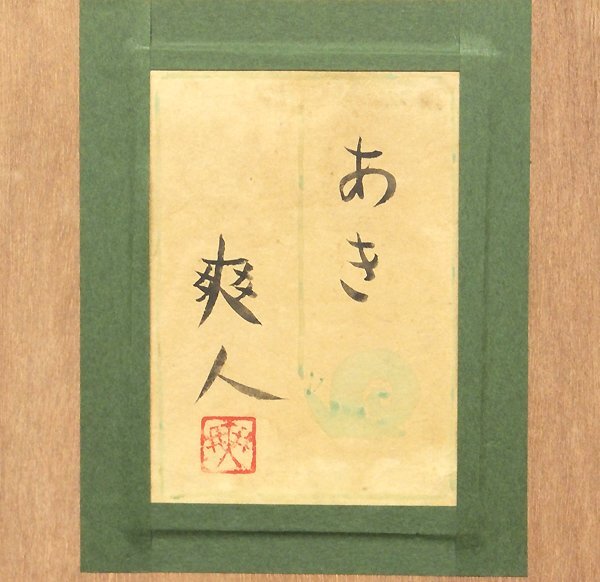 あき
爽人